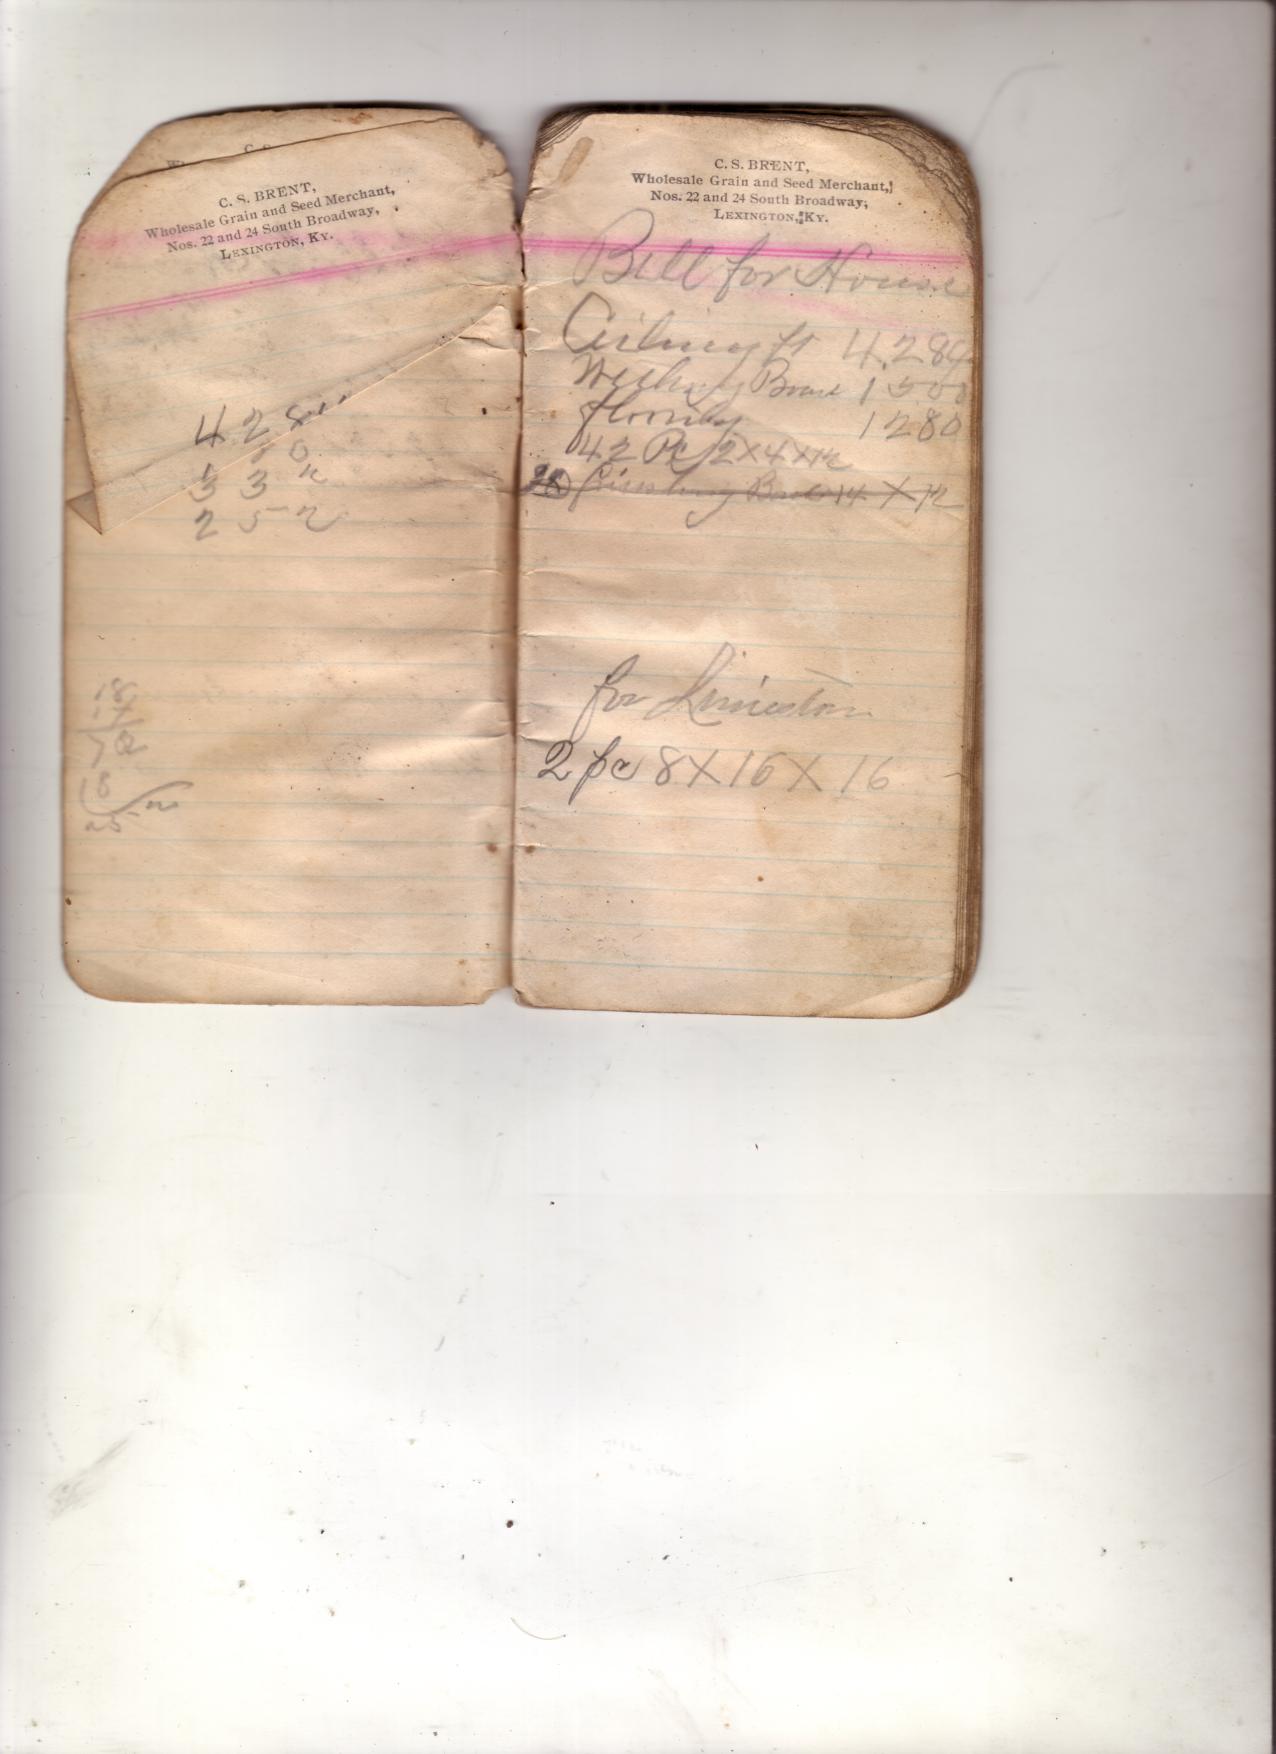 C. S.
C. S. BRENT,
Wholesale Grain and Seed Merchant,
Nos. 22 and 24 South Broadway,
LEXINGTON, KY.
4 2 8
3 3
2 5 2
18
C. S. BRENT,
Wholesale Grain and Seed Merchant,
Nos. 22 and 24 South Broadway,
LEXINGTON, KY.
Bill for House
Ceiling ft 4.284
1500
flooring 1280
42 Pc 2X4X12
14 X 12
for Limestone
2 pc 8X16X16